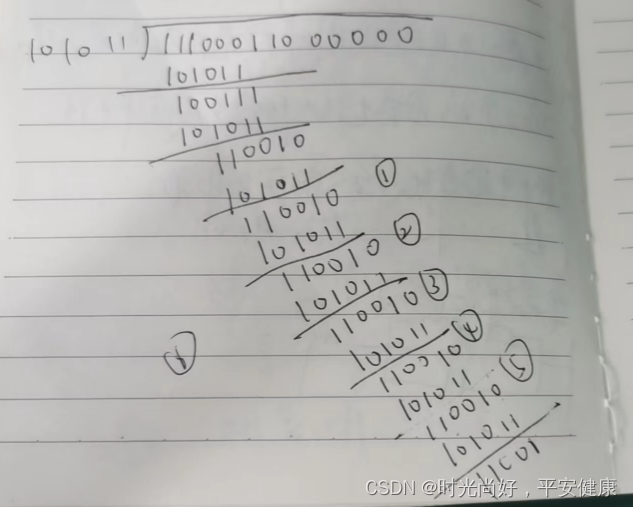 101011 11100011000000
101011
100111
101011
110010
101011 ①
110010
101011 ②
110010
101011 ③
110010
101011 ④
110010
101011 ⑤
110010
101011
11001
CSDN @时光尚好，平安健康